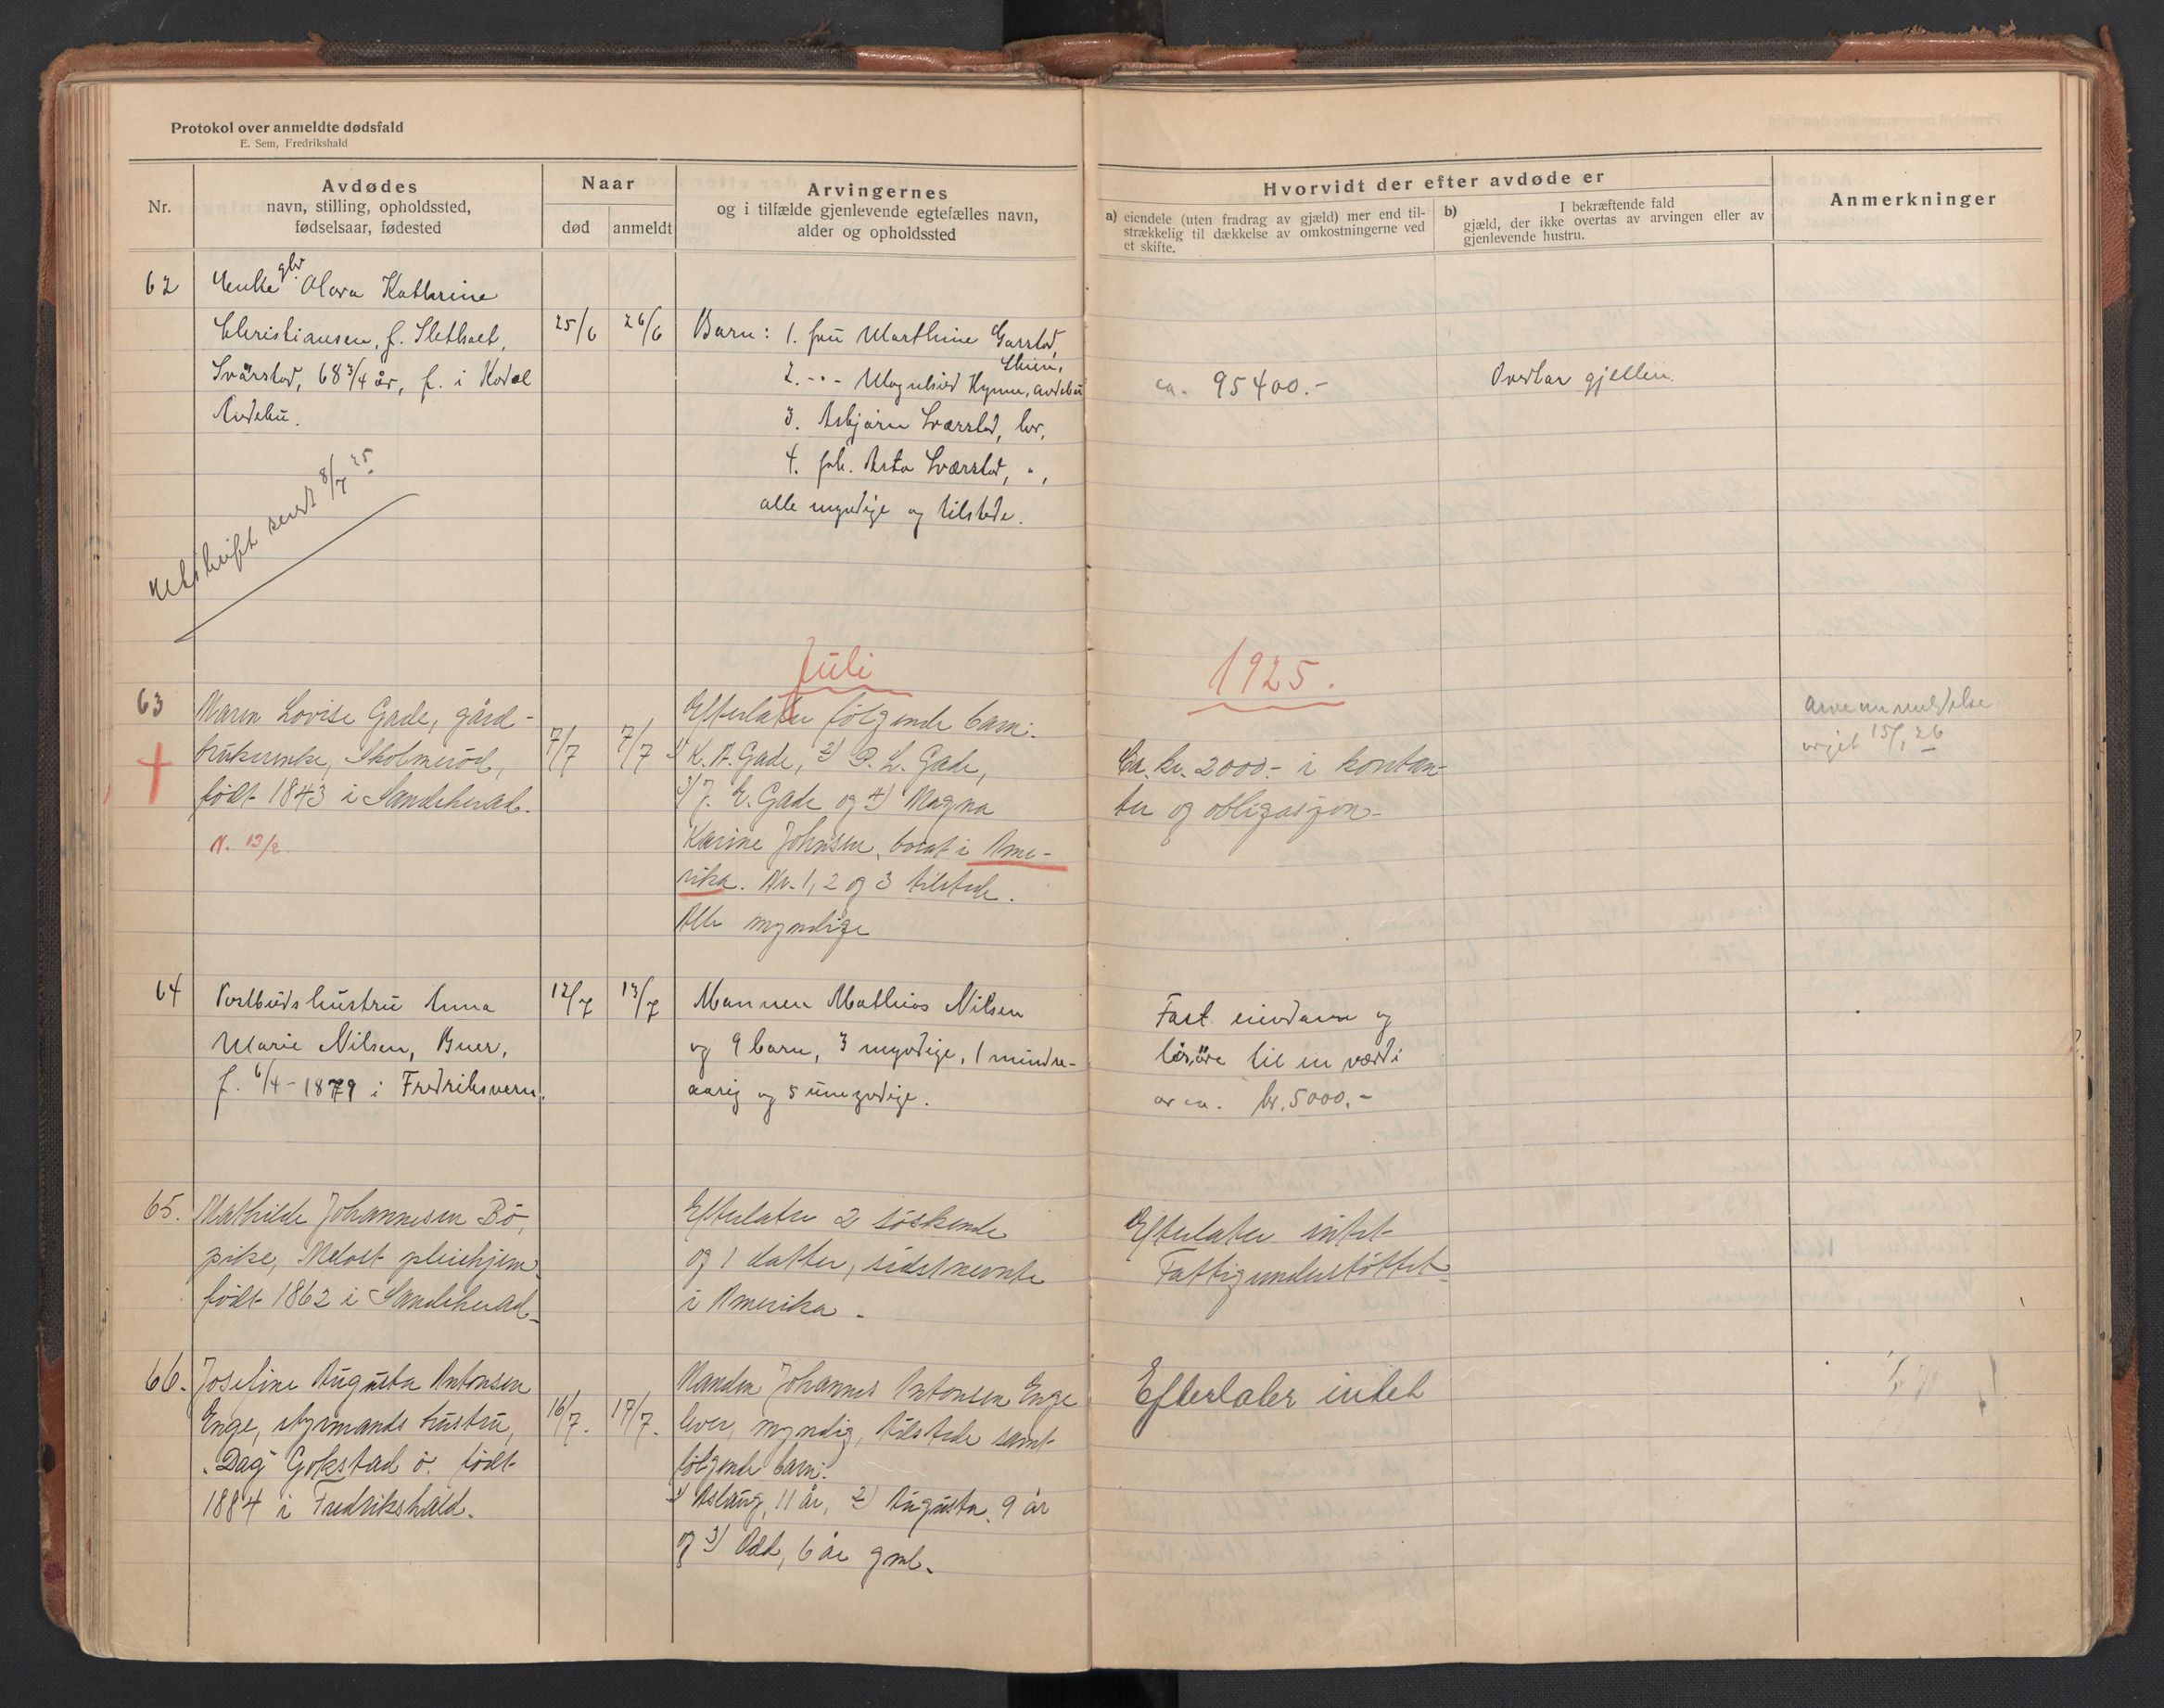 Protokol over anmeldte dødsfald
E. Sem, Fredrikshald
Nr.
Avdødes
navn, stilling, opholdssted,
fødselsaar, fødested
Naar
død
anmeldt
Arvingernes
og i tilfælde gjenlevende egtefælles navn,
alder og opholdssted
Hvorvidt der efter avdøde er
a) eiendele (uten fradrag av gjæld) mer end til-
strækkelig til dækkelse av omkostningerne ved
et skifte.
b) I bekræftende fald
gjæld, der ikke overtas av arvingen eller av
gjenlevende hustru.
Anmerkninger
62
Enke Olava Kathrine
Christiansen, f.
68 3/4 år, f. i Kodal
Andebu.
25/6
26/6
Barn: 1. fru Marthine
2. -"- Magnhild Hynne, Andebu
3. Asbjørn Sværstad, her,
4. frk. Asta Sværstad, " ,
alle myndige og tilstede.
ca. 95400.-
Overtar gjelden.
sendt 8/7 25
Juli
1925.
63
Maren Lovise Gade, gård-
brukerenke,
født 1843 i Sandeherad.
N. 13/2.
7/7
7/7
Efterlater følgende barn:
1) K. A. Gade, 2) P. L. Gade,
3) J. E. Gade og 4) Magna
Karine Johnsen, bosat i Ame-
rika. Nr. 1, 2 og 3 tilstede.
Alle myndige
Ca. kr. 2000.- i kontan-
ter og obligasjon-
Arveanmeldelse
15/1 26
64
Postbuds hustru Anna
Marie Nilsen, Buer,
f. 6/4 - 1879 i Fredriksvern.
12/7
13/7
Mannen Mathias Nilsen
og 9 barn, 3 myndige, 1 mindre-
aarig og 5 umyndige.
Fast eiendom og
løsøre til en værdi
av ca. kr. 5000.-
65.
Mathilde Johannesen Bø,
pike, pleiehjem
født 1862 i Sandeherad.
Efterlater 2 søskende
og 1 datter, sidstnevnte
i Amerika.
Efterlater intet
Fattigunderstøttet
66.
Josefine Augusta Antonsen
Enge, styrmands hustru,
"Dag" Gokstad ø. født
1884 i Fredrikshald.
16/7.
17/7.
Manden Johannes Antonsen Enge
lever, myndig, tilstede samt
følgende barn:
1) Aslaug, 11 år, 2) Augusta, 9 år
og 3) Odd, 6 år gml.
Efterlater intet